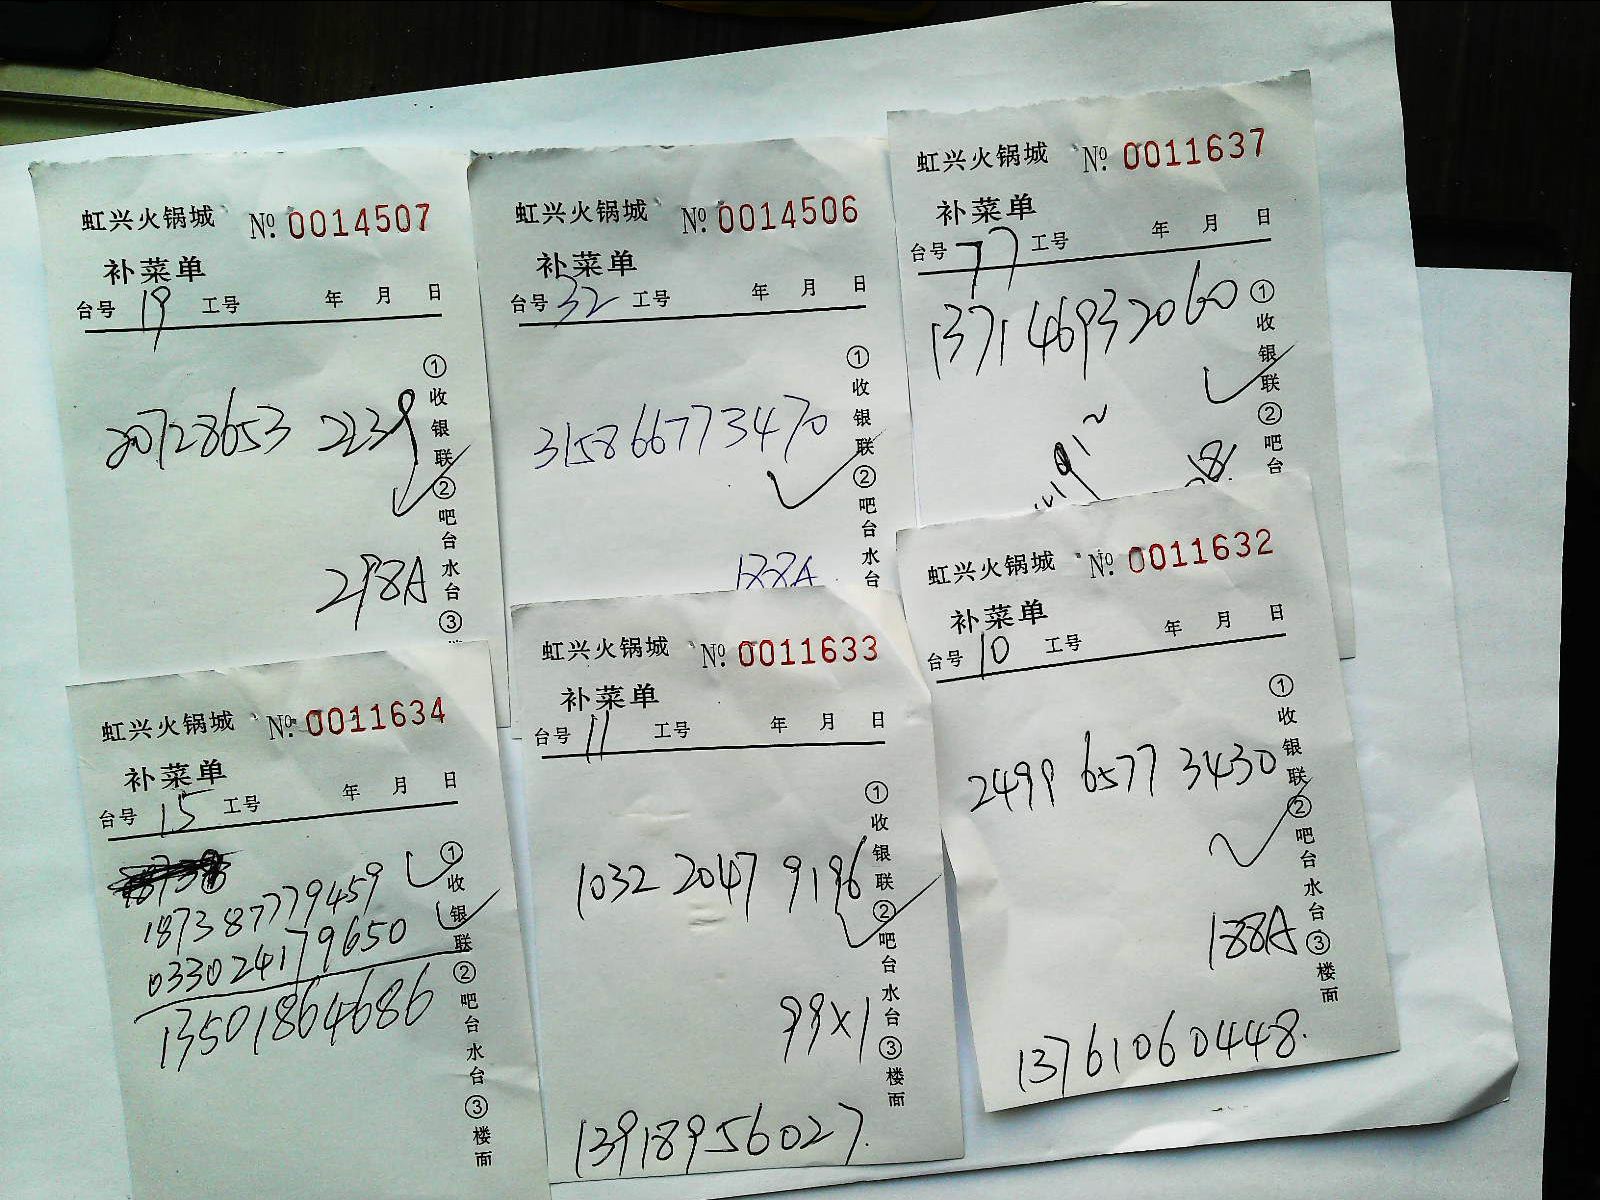 虹兴火锅城 № 0014507
补菜单
台号 19 工号 年 月 日
20728653 2239
298A
①收银联②吧台水台③
虹兴火锅城 № 0014506
补菜单
台号 32 工号 年 月 日
315866773470
188A
①收银联②吧台水台
虹兴火锅城 № 0011637
补菜单
台号 77 工号 年 月 日
137146932060
①收银联②吧台
虹兴火锅城 № 0011634
补菜单
台号 15 工号 年 月 日
187387779459
033024179650
13501864686
①收银联②吧台水台③楼面
虹兴火锅城 № 0011633
补菜单
台号 11 工号 年 月 日
1032 2047 9196
99X1
13918956027.
①收银联②吧台水台③楼面
虹兴火锅城 № 0011632
补菜单
台号 10 工号 年 月 日
2499 6577 3430
188A
13761060448.
①收银联②吧台水台③楼面